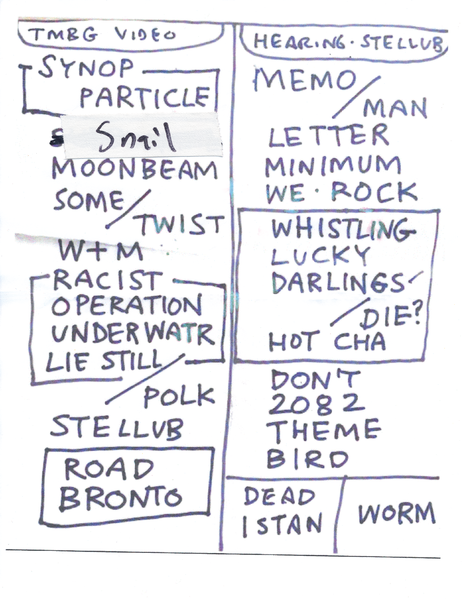 TMBG VIDEO
SYNOP
PARTICLE
Snail
MOONBEAM
SOME/
TWIST
W+M
RACIST
OPERATION
UNDERWATR
LIE STILL/
POLK
STELLUB
ROAD
BRONTO
HEARING·STELLUB
MEMO
/MAN
LETTER
MINIMUM
WE·ROCK
WHISTLING
LUCKY
DARLINGS
/DIE?
HOT CHA
DON'T
2082
THEME
BIRD
DEAD
ISTAN
WORM